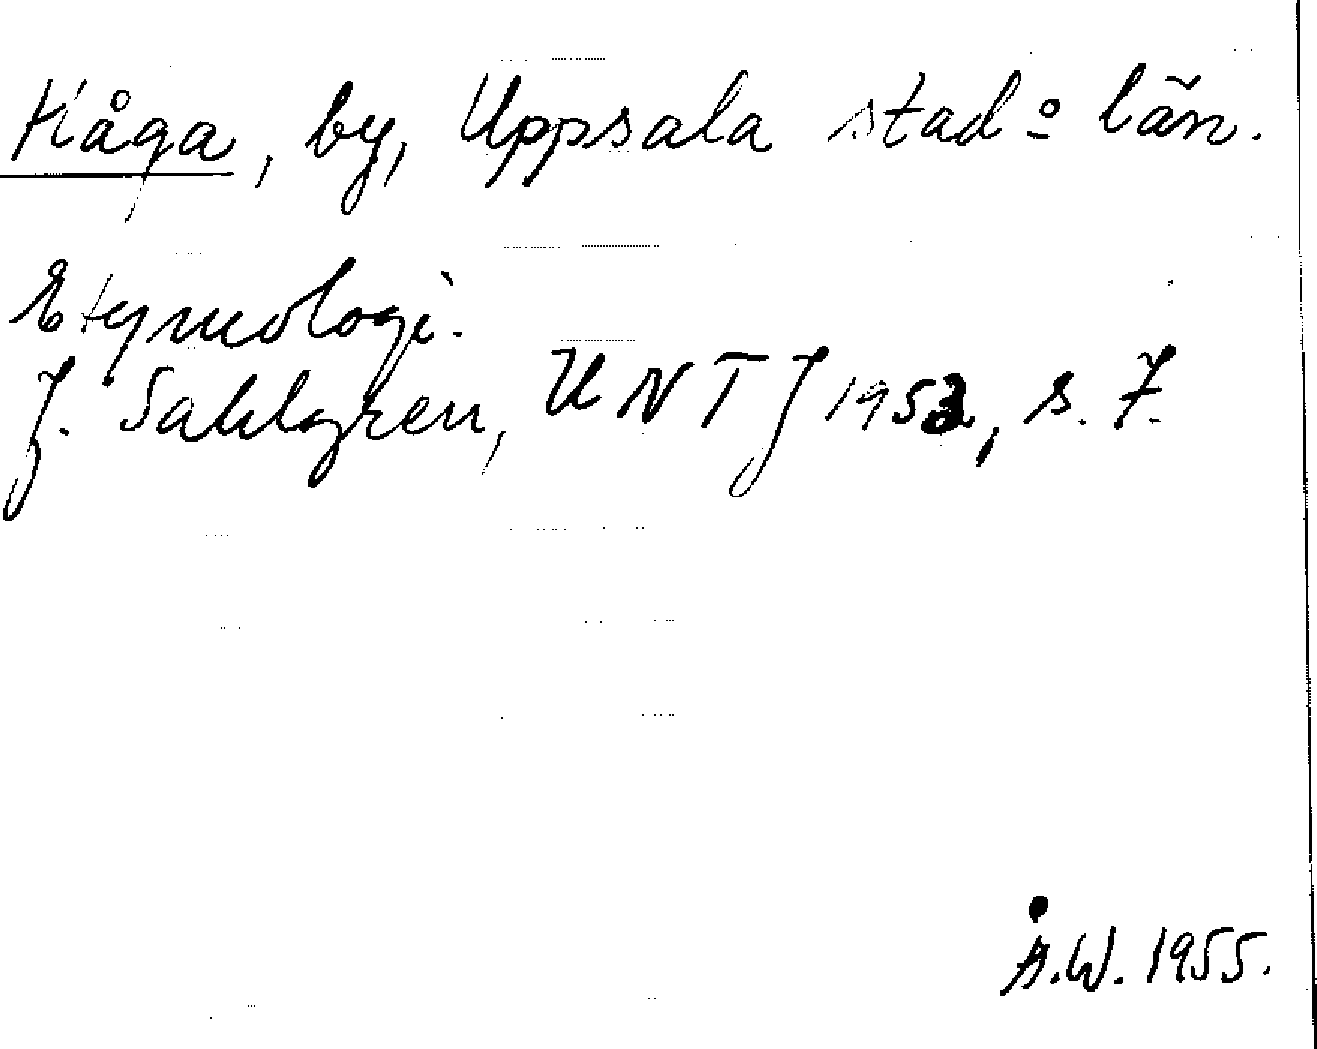 Håga, by, Uppsala stad o län.
Etymologi.
J. Sahlgren, UNTJ 1953, s. 7.
Å.W. 1955.